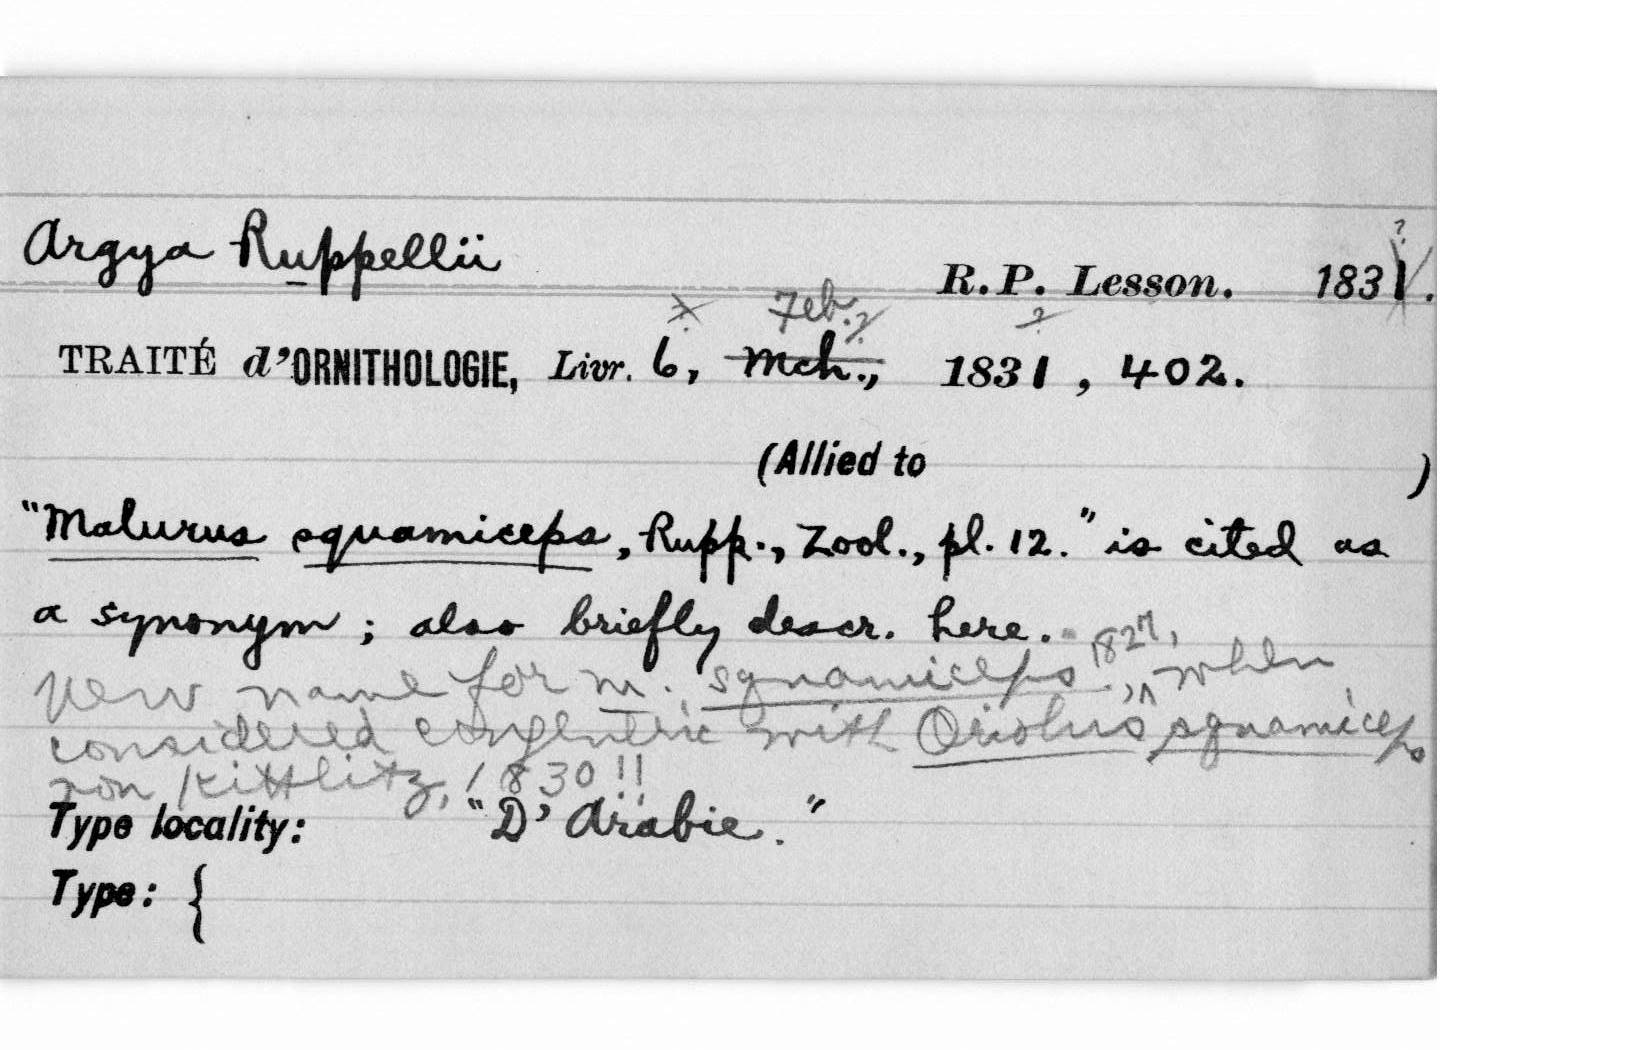 Argya Ruppellii
R.P. Lesson. 1831.
?
Feb.?
?
TRAITÉ d'ORNITHOLOGIE, Livr. 6, Mch., 1831, 402.
(Allied to )
"Malurus squamiceps, Rupp., Zool., pl. 12." is cited as
a synonym; also briefly descr. here.
New name for M. squamiceps, 1827, when
considered congeneric with Oriolus squamiceps
von Kittlitz, 1830!!
Type locality: "D'Arabie."
Type: {